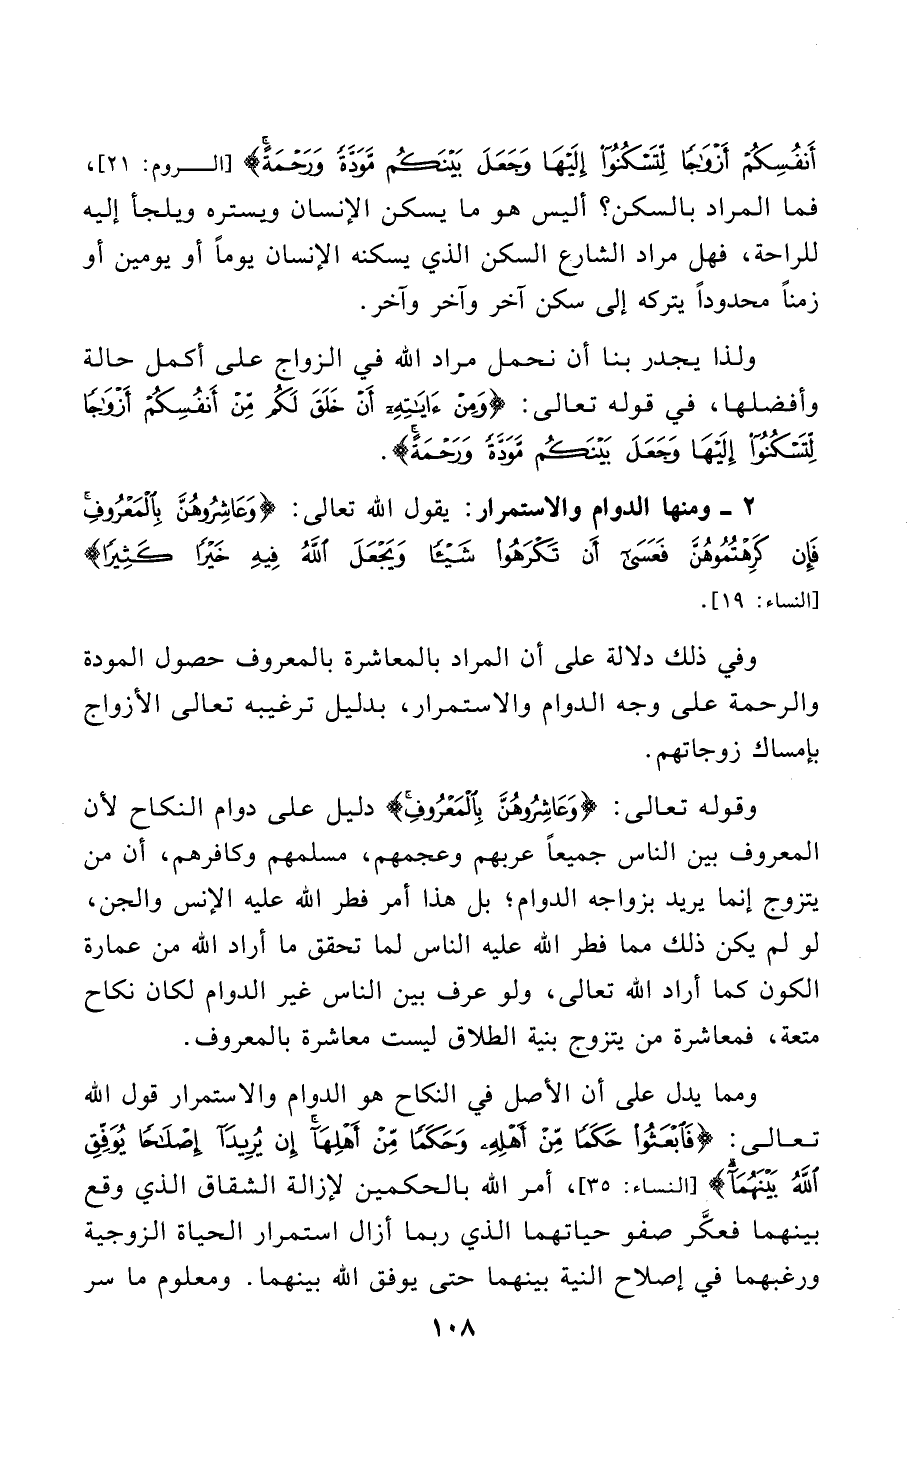 أَنفُسِكُمْ أَزْوَٰجًا لِّتَسْكُنُوٓا۟ إِلَيْهَا وَجَعَلَ بَيْنَكُم مَّوَدَّةً وَرَحْمَةًۚ﴾ [الــروم: ٢١]،
فما المراد بالسكن؟ أليس هو ما يسكن الإنسان ويستره ويلجأ إليه
للراحة، فهل مراد الشارع السكن الذي يسكنه الإنسان يوماً أو يومين أو
زمناً محدوداً يتركه إلى سكن آخر وآخر وآخر.
ولذا يجدر بنا أن نحمل مراد الله في الزواج على أكمل حالة
وأفضلها، في قوله تعالى: ﴿وَمِنْ ءَايَٰتِهِۦٓ أَنْ خَلَقَ لَكُم مِّنْ أَنفُسِكُمْ أَزْوَٰجًا
لِّتَسْكُنُوٓا۟ إِلَيْهَا وَجَعَلَ بَيْنَكُم مَّوَدَّةً وَرَحْمَةًۚ﴾.
٢ - ومنها الدوام والاستمرار: يقول الله تعالى: ﴿وَعَاشِرُوهُنَّ بِٱلْمَعْرُوفِۚ
فَإِن كَرِهْتُمُوهُنَّ فَعَسَىٰٓ أَن تَكْرَهُوا۟ شَيْـًٔا وَيَجْعَلَ ٱللَّهُ فِيهِ خَيْرًا كَثِيرًا﴾
[النساء: ١٩].
وفي ذلك دلالة على أن المراد بالمعاشرة بالمعروف حصول المودة
والرحمة على وجه الدوام والاستمرار، بدليل ترغيبه تعالى الأزواج
بإمساك زوجاتهم.
وقوله تعالى: ﴿وَعَاشِرُوهُنَّ بِٱلْمَعْرُوفِۚ﴾ دليل على دوام النكاح لأن
المعروف بين الناس جميعاً عربهم وعجمهم، مسلمهم وكافرهم، أن من
يتزوج إنما يريد بزواجه الدوام؛ بل هذا أمر فطر الله عليه الإنس والجن،
لو لم يكن ذلك مما فطر الله عليه الناس لما تحقق ما أراد الله من عمارة
الكون كما أراد الله تعالى، ولو عرف بين الناس غير الدوام لكان نكاح
متعة، فمعاشرة من يتزوج بنية الطلاق ليست معاشرة بالمعروف.
ومما يدل على أن الأصل في النكاح هو الدوام والاستمرار قول الله
تعالى: ﴿فَٱبْعَثُوا۟ حَكَمًا مِّنْ أَهْلِهِۦ وَحَكَمًا مِّنْ أَهْلِهَآۚ إِن يُرِيدَآ إِصْلَٰحًا يُوَفِّقِ
ٱللَّهُ بَيْنَهُمَآۗ﴾ [النساء: ٣٥]، أمر الله بالحكمين لإزالة الشقاق الذي وقع
بينهما فعكَّر صفو حياتهما الذي ربما أزال استمرار الحياة الزوجية
ورغبهما في إصلاح النية بينهما حتى يوفق الله بينهما. ومعلوم ما سر
١٠٨